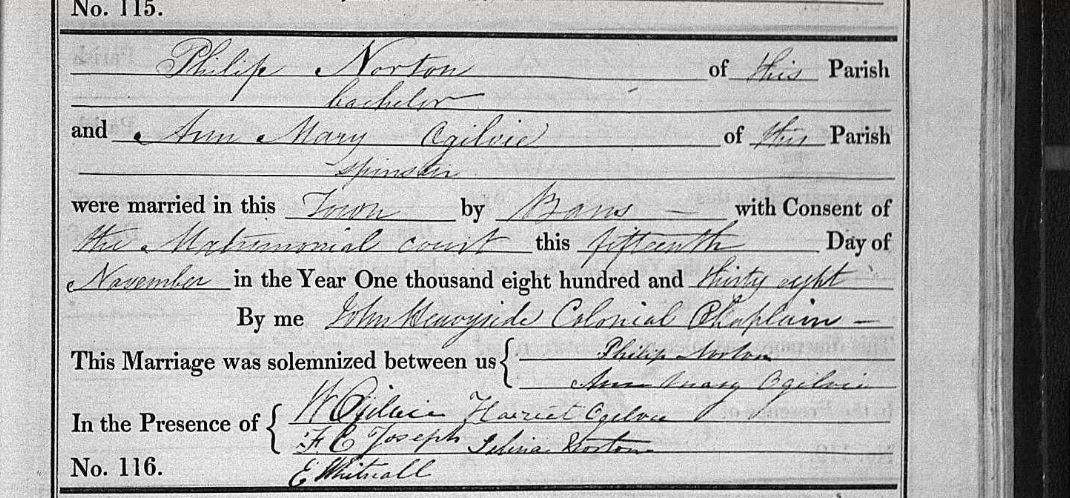 No. 115.
Philip Norton of this Parish
bachelor
and Ann Mary Ogilvie of this Parish
spinster
were married in this Town by Bans — with Consent of
the Matremonial court this fifteenth Day of
November in the Year One thousand eight hundred and thirty eight
By me John Heavyside Colonial Chaplain —
This Marriage was solemnized between us { Philip Norton
Ann Mary Ogilvie
In the Presence of { W Ogilvie Harriet Ogilvie
F C Joseph Norton
No. 116. E Whitnall